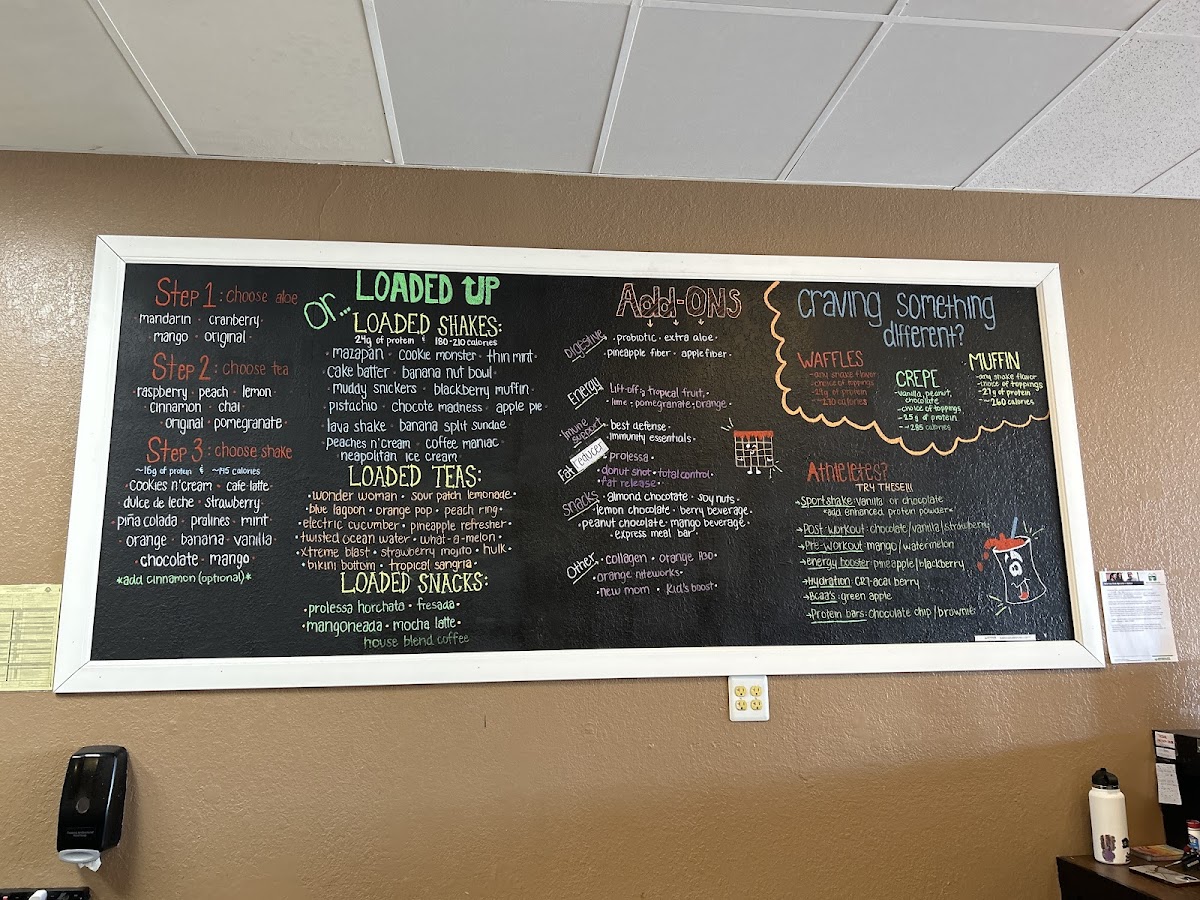 Step 1: choose aloe
mandarin · cranberry ·
· mango · original ·
Step 2: choose tea
raspberry · peach · lemon ·
cinnamon · chai ·
original · pomegranate ·
Step 3: choose shake
~16g of protein & ~145 calories
cookies n'cream · cafe latte ·
dulce de leche · strawberry ·
· piña colada · pralines · mint ·
· orange · banana · vanilla
· chocolate · mango ·
*add cinnamon (optional)*
Or...
LOADED UP
LOADED SHAKES:
24g of protein & 180-210 calories
mazapan · cookie monster · thin mint ·
cake batter · banana nut bowl ·
· muddy snickers · blackberry muffin ·
· pistachio · chocote madness · apple pie ·
· lava shake · banana split sundae ·
peaches n'cream · coffee maniac ·
· neapolitan ice cream ·
LOADED TEAS:
· wonder woman · sour patch lemonade ·
· blue lagoon · orange pop · peach ring ·
· electric cucumber · pineapple refresher ·
· twisted ocean water · what-a-melon ·
· xtreme blast · strawberry mojito · hulk ·
· bikini bottom · tropical sangria ·
LOADED SNACKS:
· prolessa horchata · fresada ·
· mangoneada · mocha latte ·
house blend coffee
Add-ONS
Digestive
· probiotic · extra aloe ·
· pineapple fiber · apple fiber ·
Energy
· Lift-off: tropical fruit,
· lime · pomegranate · orange ·
Imune support
· best defense ·
· immunity essentials ·
Fat reducer
· prolessa ·
· donut shot · total control ·
· fat release ·
Snacks
· almond chocolate · soy nuts ·
· lemon chocolate · berry beverage ·
· peanut chocolate · mango beverage ·
· express meal bar ·
Other
· collagen · orange H30 ·
· orange niteworks ·
· new mom · kid's boost ·
craving something
different?
WAFFLES
-any shake flavor
-choice of toppings
CREPE
-vanilla, peanut,
chocolate
-choice of toppings
-25g of protein
-~285 calories
MUFFIN
-any shake flavor
-choice of toppings
-27g of protein
-~260 calories
Athletetes?
TRY THESE!!!
→Sport shake: vanilla or chocolate
*add enhanced protein powder*
→Post workout: chocolate/vanilla/strawberry
→Pre-workout: mango/watermelon
→energy booster: pineapple/blackberry
→Hydration: CR7-acai berry
→Bcaa's: green apple
→Protein bars: chocolate chip/brownie